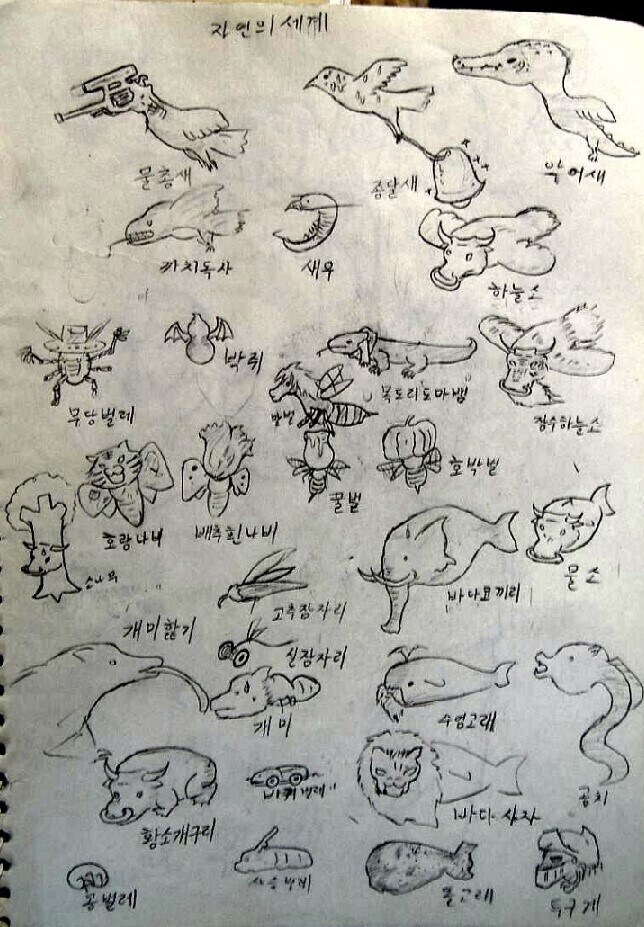 자연의 세계
물총새
종달새
악어새
까치독사
새우
하늘소
무당벌레
박쥐
목도리도마뱀
장수하늘소
말벌
꿀벌
호박벌
호랑나비
배추흰나비
소나무
고추잠자리
바다코끼리
물소
개미핥기
실잠자리
개미
수염고래
바다사자
곰치
황소개구리
바퀴벌레
콩벌레
사슴벌레
돌고래
투구게